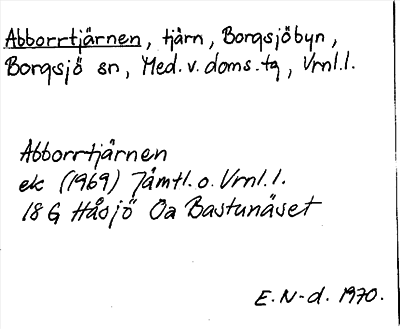 Abborrtjärnen, tjärn, Borgsjöbyn,
Borgsjö sn, Med. v. doms. tg, Vrnl. l.
Abborrtjärnen
ek (1969) Jämtl. o. Vrnl. l.
18 G Håsjö 0a Bastunäset
E. N-d. 1970.